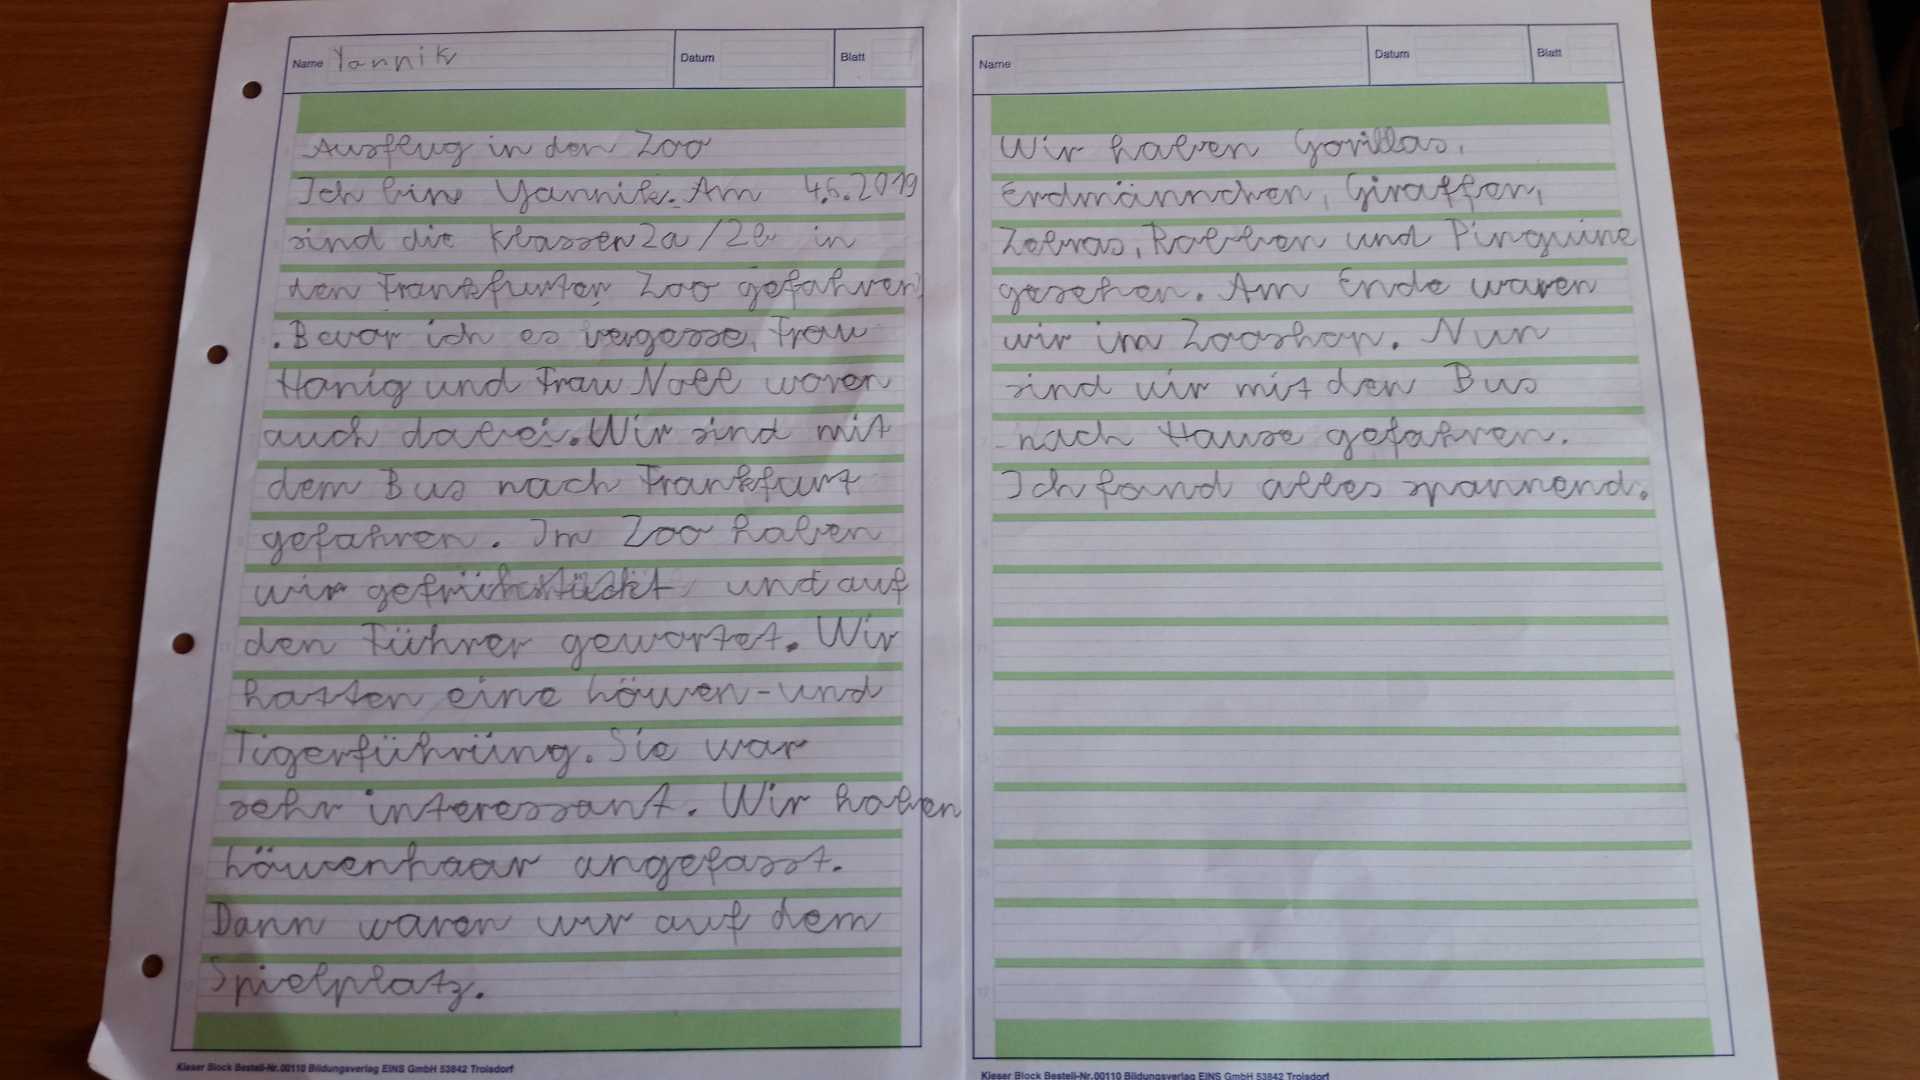 Name Yannik Datum Blatt
Ausflug in den Zoo
Ich bins Yannik. Am 4.6.2019
sind die Klassen 2a/2b in
den Frankfurter Zoo gefahren
. Bevor ich es vergesse, Frau
Honig und Frau Noll waren
auch dabei. Wir sind mit
dem Bus nach Frankfurt
gefahren. Im Zoo haben
wir gefrühstückt und auf
den Führer gewartet. Wir
hatten eine Löwen-und
Tigerführüng. Sie war
sehr interessant. Wir haben
Löwenhaar angefasst.
Dann waren wir auf dem
Spielplatz.
Kieser Block Bestell-Nr.00110 Bildungsverlag EINS GmbH 53842 Troisdorf
Name Datum Blatt
Wir haben Gorillas,
Erdmännchen, Giraffen,
Zebras, Robben und Pinguine
gesehen. Am Ende waren
wir im Zooshop. Nun
sind wir mit den Bus
nach Hause gefahren.
Ich fand alles spannend.
Kieser Block Bestell-Nr.00110 Bildungsverlag EINS GmbH 53842 Troisdorf